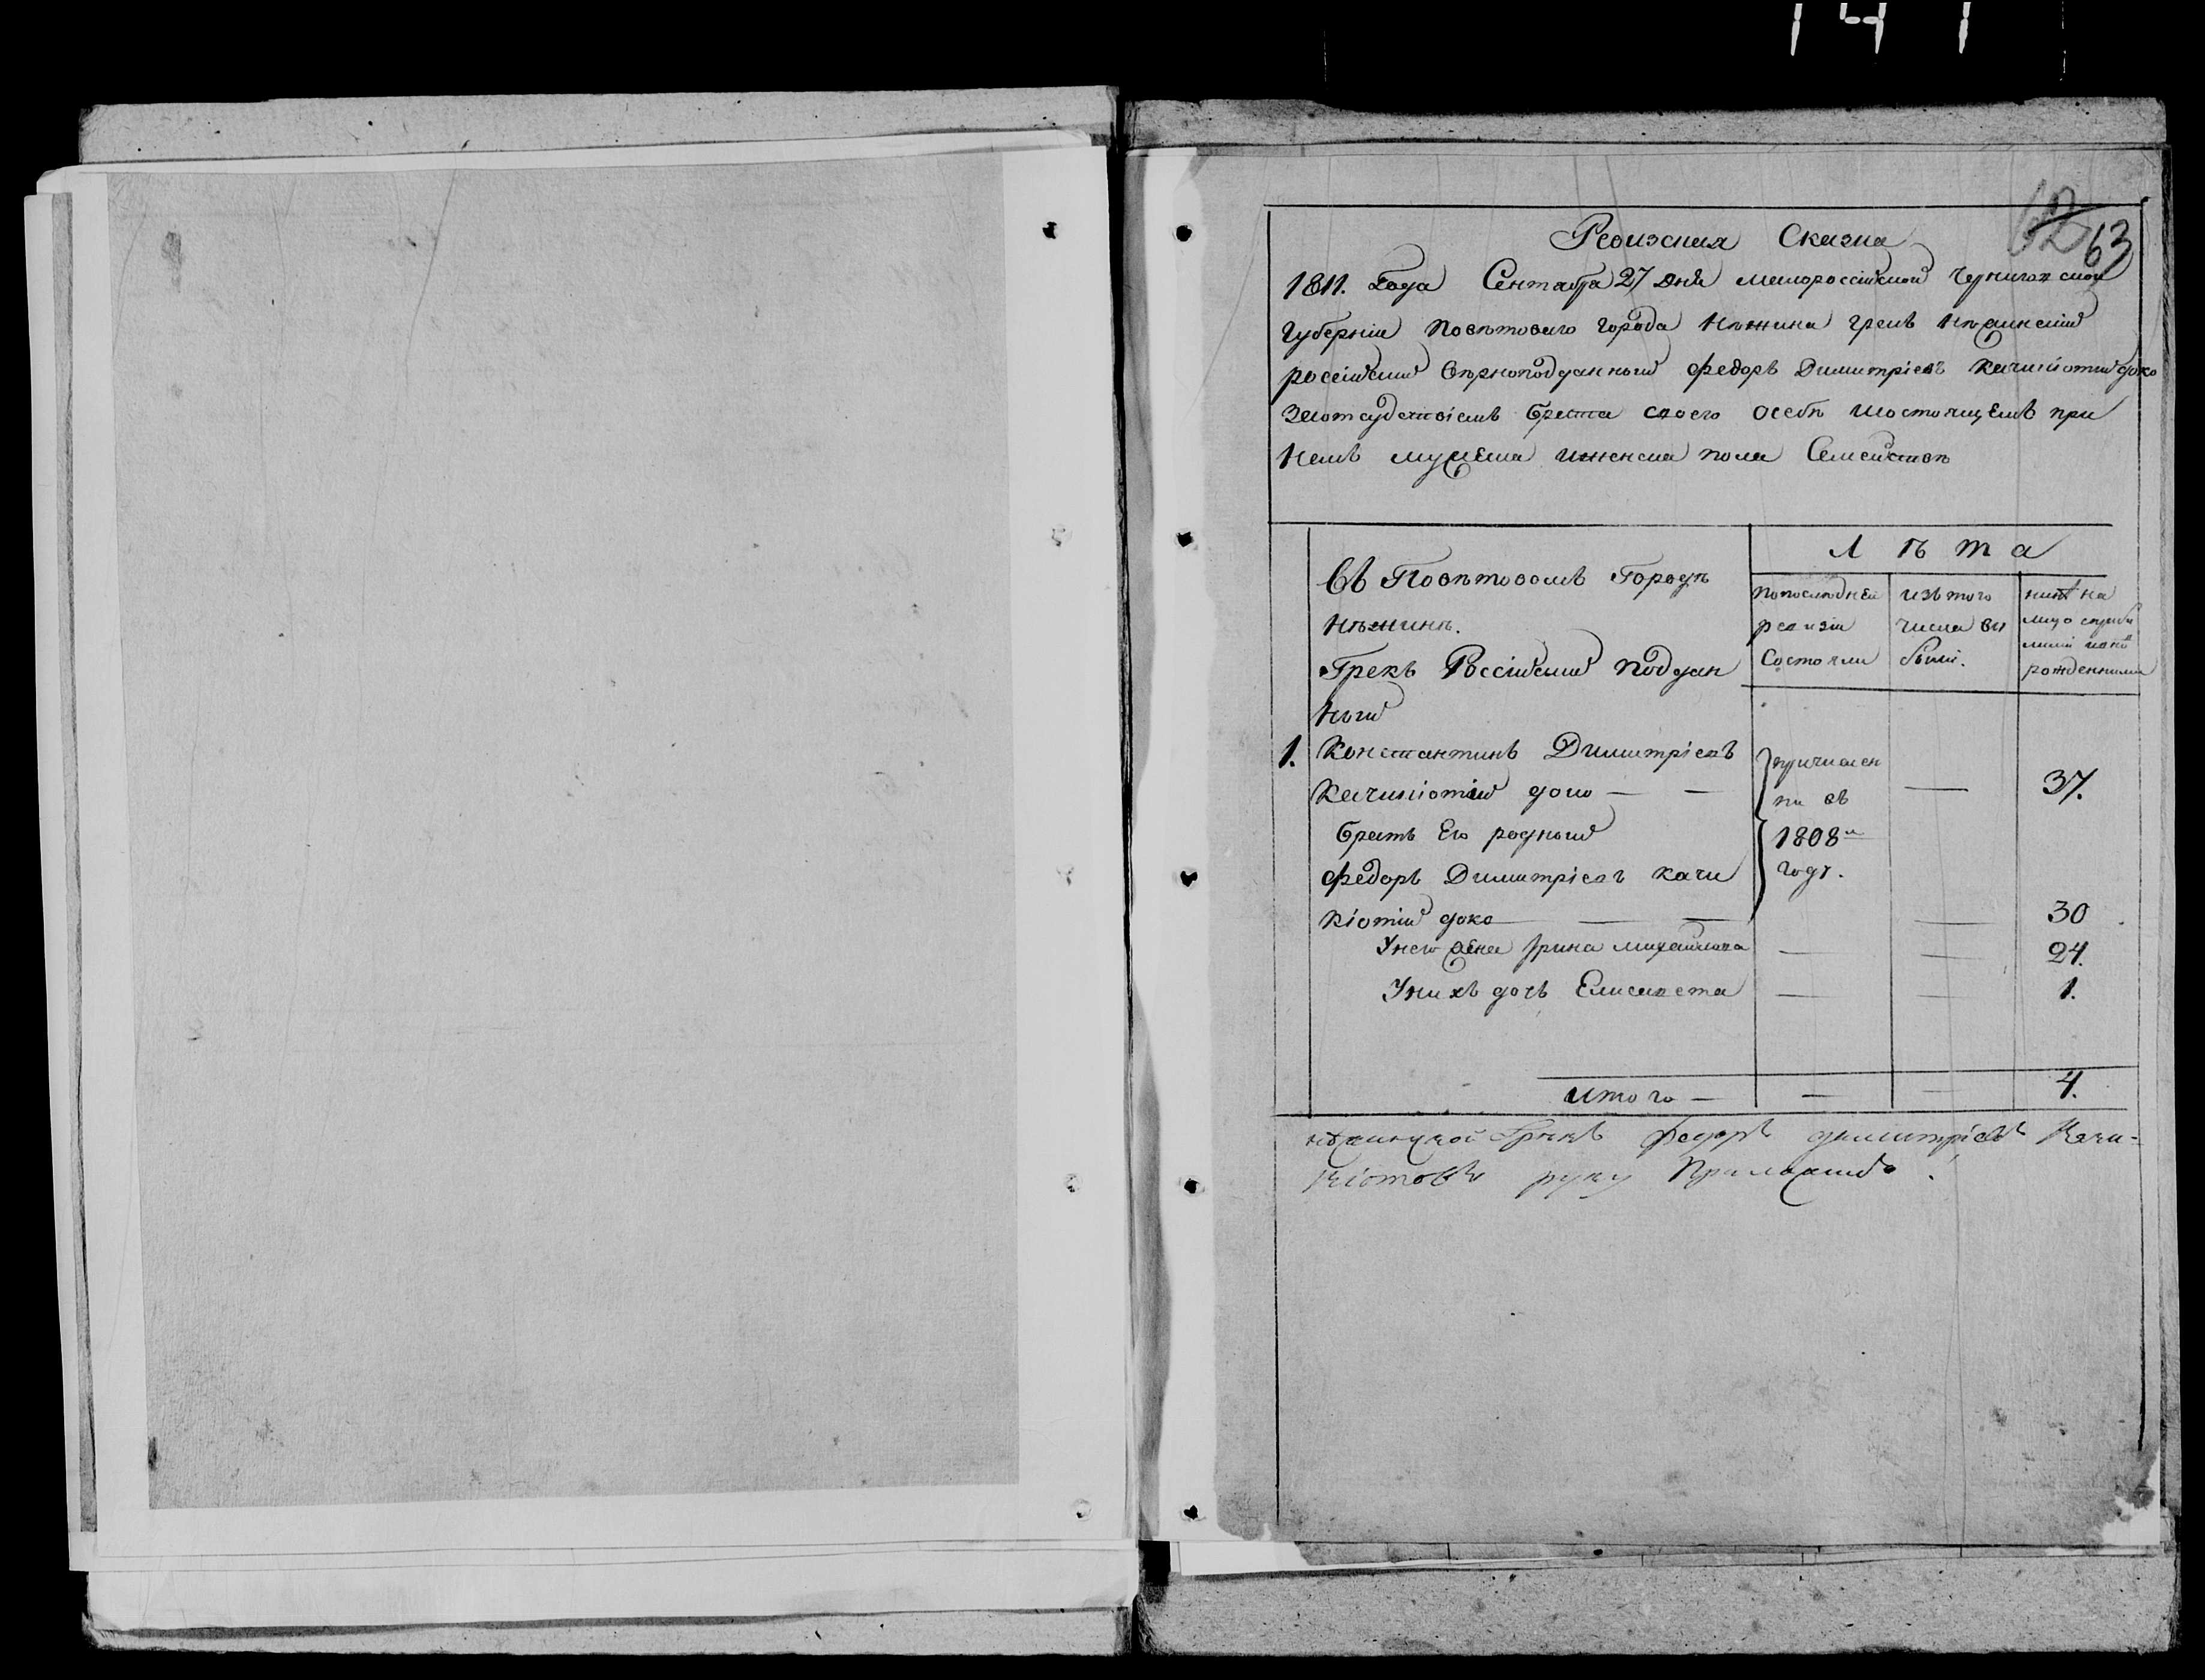 141
62
63
Ревизская Сказка
1811. Года Сентября 27 дня малороссійской Черниговской
Губерніи Повѣтоваго города Нѣжина грекъ Нѣжинскій
россійскій вѣрноподданный Федоръ Димитріевъ Качикіотій доко
заотсудствіемъ брата своего особѣ исостоящемъ при
немъ мужеска иженска пола Семействѣ
Въ Повѣтовомъ Городѣ
Нѣжинѣ.
Грекъ Россійскій поддан
ный
Лѣта
Попослѣдней
ревизіи
Состояли
изътого
числа вы
были.
нынѣ на
лицо
рожденными
1. Константинъ Димитріевъ
Качикіотій доко — —
причислен
ни въ
1808м
году.
—
37.
братъ Его родный
Федоръ Димитріевъ качи
кіотій доко — — — 30
Унего жена Ирина михайлова — — 24.
Унихъ дочь Елисавета — — 1.
итого — — — 4.
нѣжинской Грекъ федоръ димитріевъ Качи-
кіотовъ руку Приложилъ.